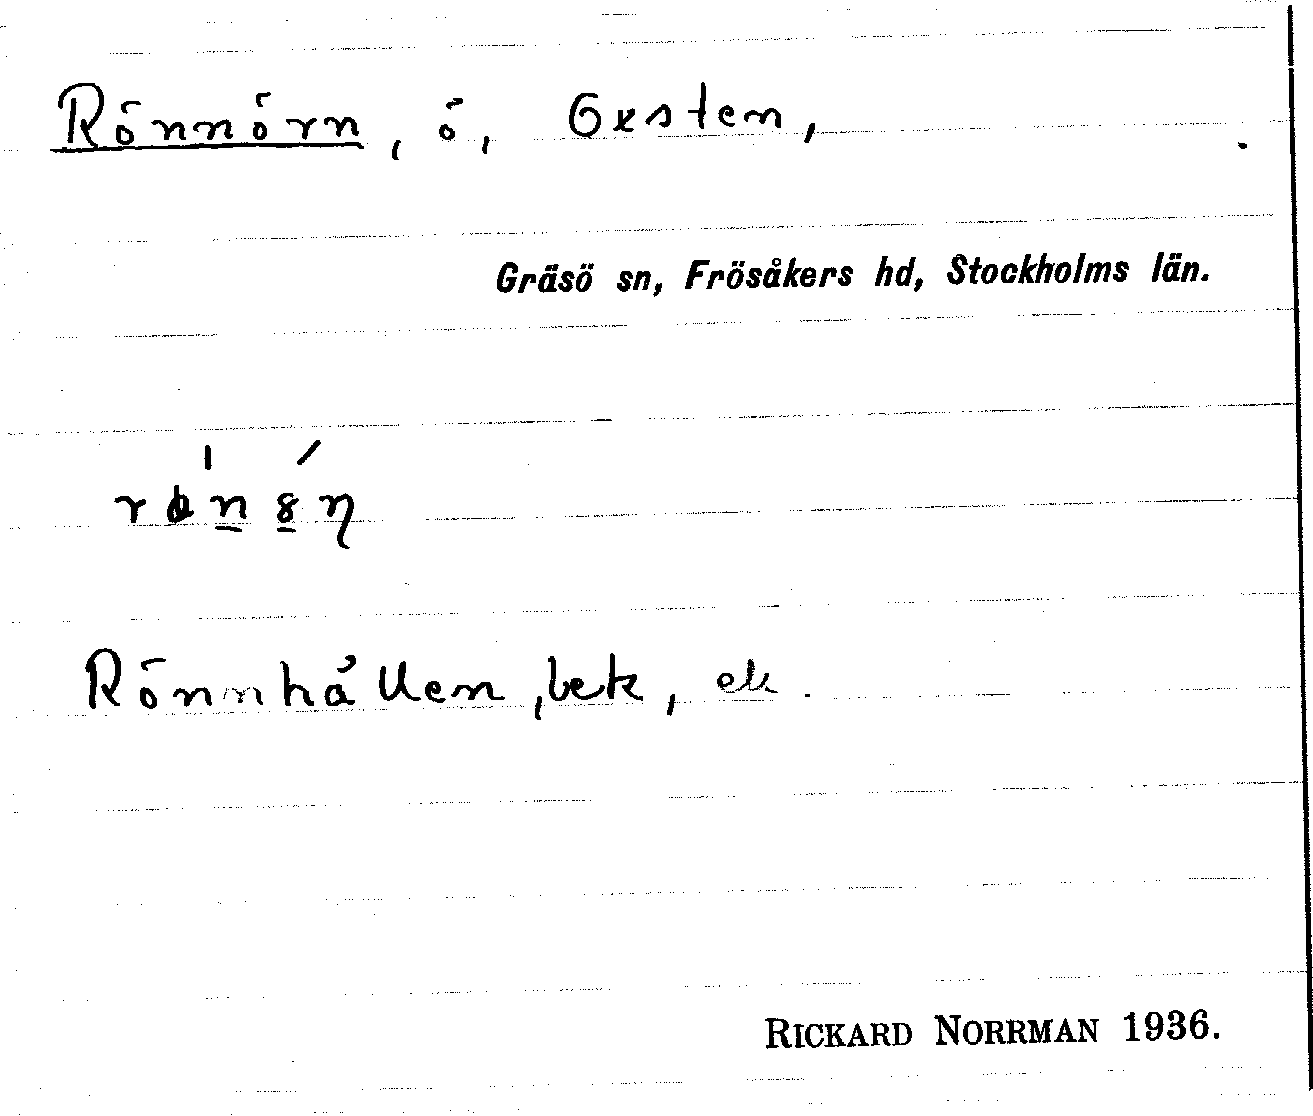 Rönnörn, ö, Gxsten,
Gräsö sn, Frösåkers hd, Stockholms län.
Rönnhällen, bek, ek.
RICKARD NORRMAN 1936.